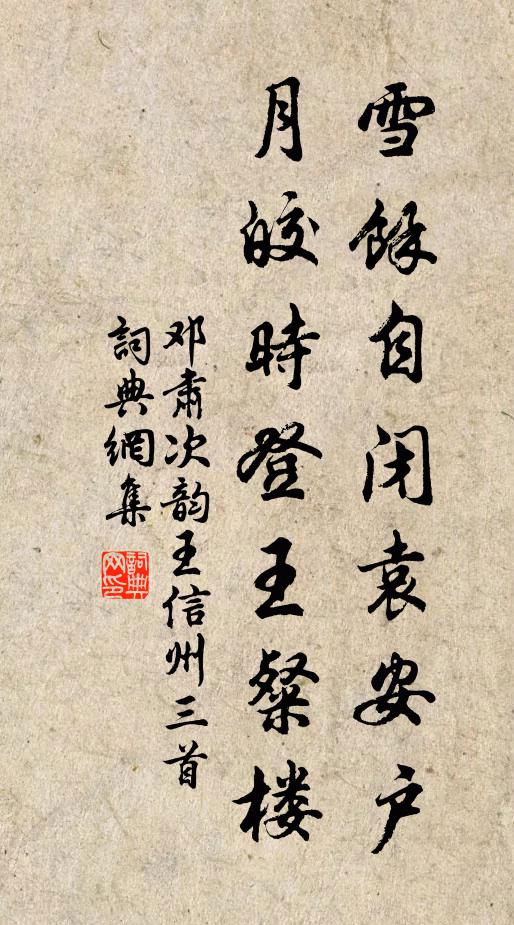 雪馀自闭袁安户
月皎時登王粲楼
邓肃次韵王信州三首
詞典網集
詞典网印